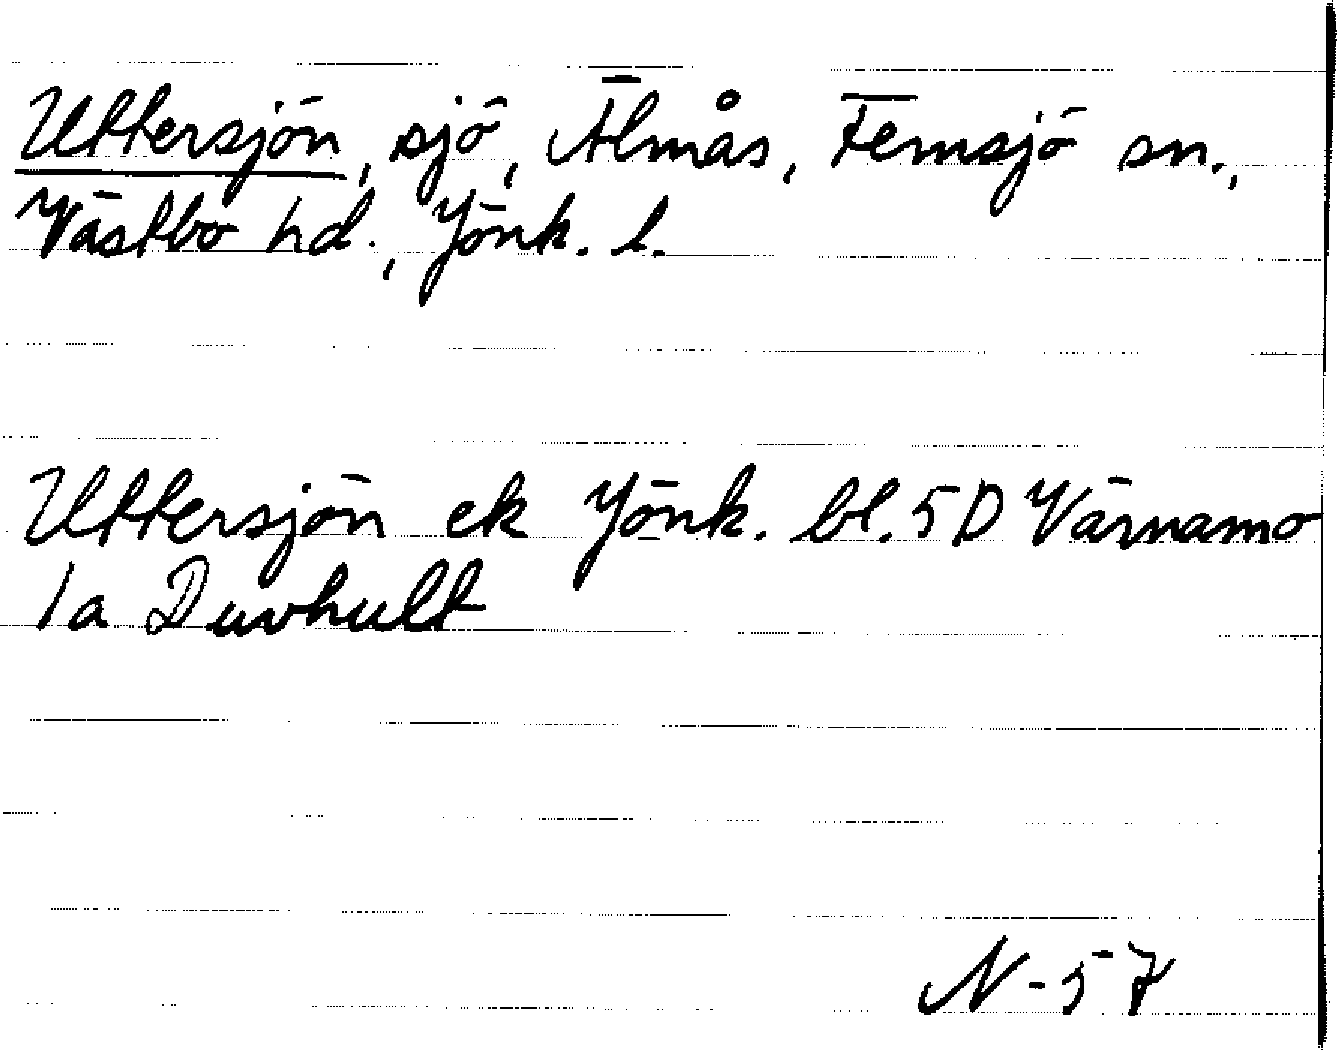 Uttersjön, sjö, Älmås, Femsjö sn.,
Västbo hd., Jönk. l.
Uttersjön ek Jönk. bl. 5D Värnamo
1a Duvhult
N-57